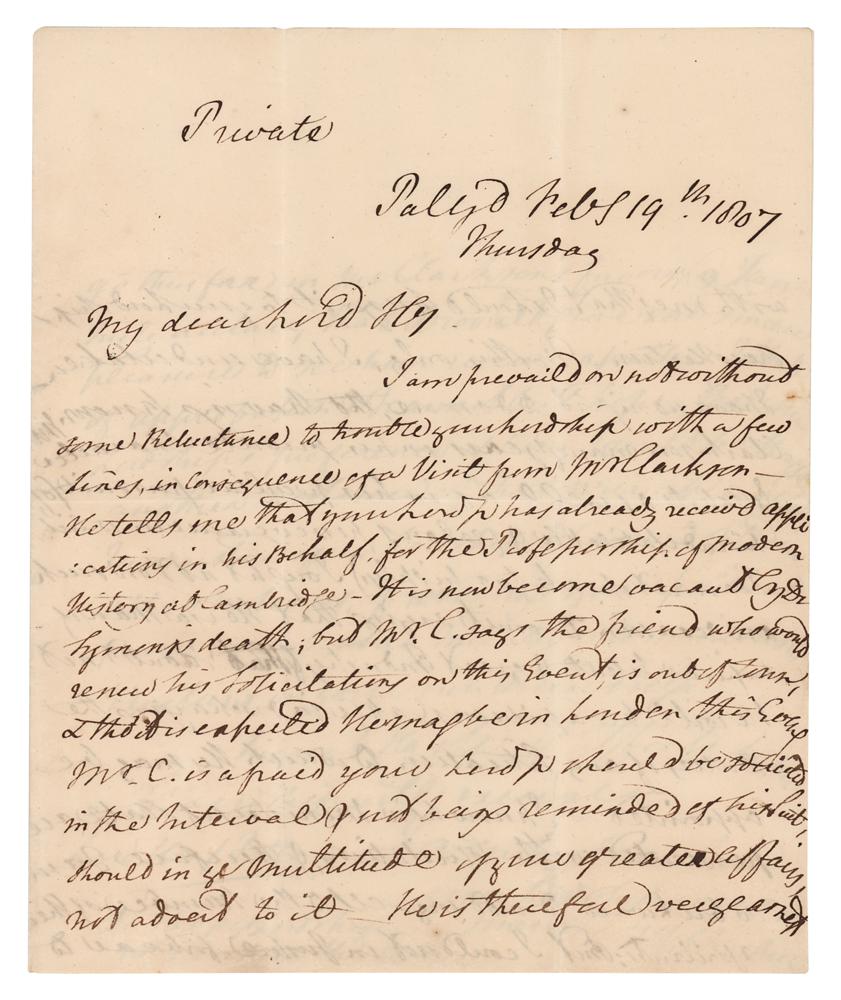 Private
Pal: Yd Feby 19th. 1807
Thursday
My dear Lord Hy
I am prevaild on not without
some Reluctance to trouble your Lordship with a few
Lines, in Consequence of a Visit from Mr Clarkson -
He tells me that your Lordp has already receiv'd appli
:cations in his Behalf. for the Professorship. of Modern
History at Cambridge - It is now become vacant by Dr
Symonds death; but Mr. C. says the friend who would
renew his Solicitations on this Event, is out of Town,
& tho' it is expected He may be in London this Eveng
Mr. C. is afraid your Lordp should be solicited
in the Interval, & not being reminded of his Suit,
should in ye Multitude of your greater affairs,
not advert to it He is therefore very earnest